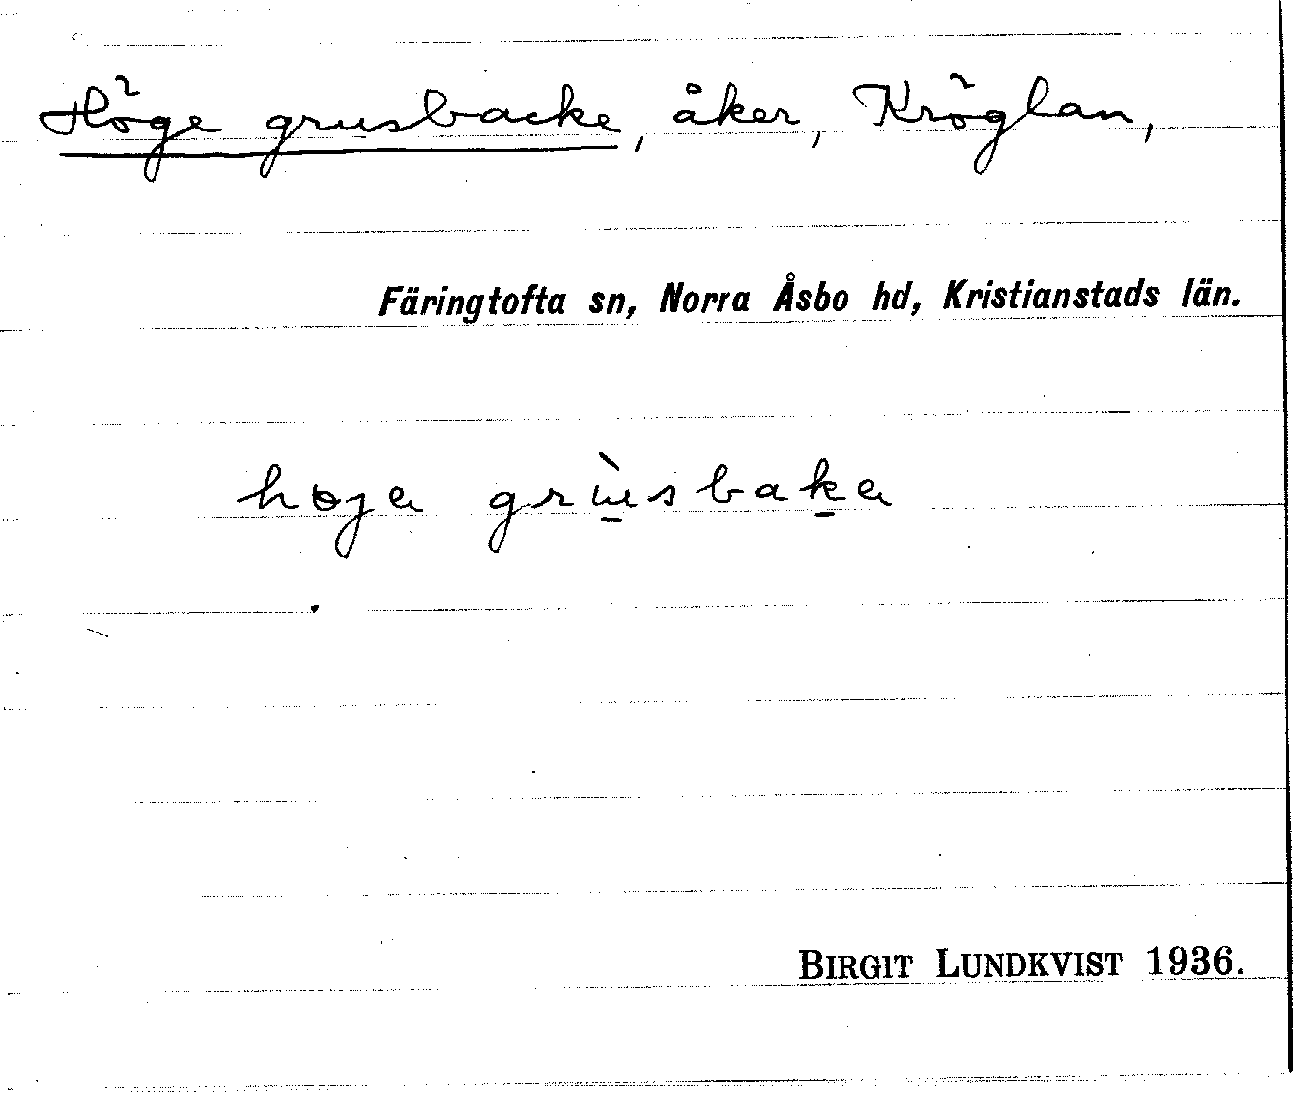 Höge grusbacke, åker, Kröglan,
Färingtofta sn, Norra Åsbo hd, Kristianstads län.
høga grùsbaka
BIRGIT LUNDKVIST 1936.